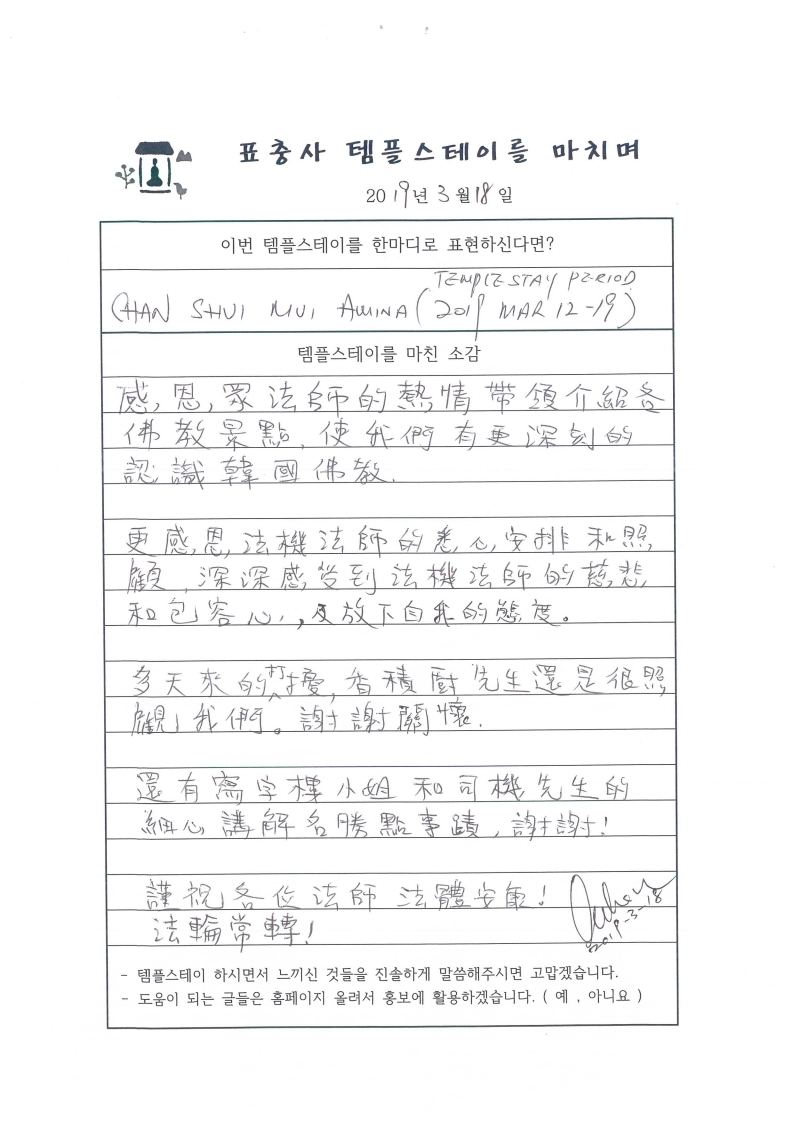 표충사 템플스테이를 마치며
2019년 3월 18일
이번 템플스테이를 한마디로 표현하신다면?
TEMPLE STAY PERIOD
CHAN SHUI MUI AMINA (2019 MAR 12-19)
템플스테이를 마친 소감
感恩眾法師的熱情帶領介紹各
佛教景點, 使我們有更深刻的
認識韓國佛教.
更感恩法機法師的悉心安排和照
顧, 深深感受到法機法師的慈悲
和包容心, 及放下自我的態度。
多天來的打擾, 香積廚先生還是很照
顧我們。謝謝關懷.
還有寫字樓小姐和司機先生的
細心講解名勝點事蹟, 謝謝!
謹祝各位法師 法體安康!
法輪常轉!
2019-3-18
- 템플스테이 하시면서 느끼신 것들을 진솔하게 말씀해주시면 고맙겠습니다.
- 도움이 되는 글들은 홈페이지 올려서 홍보에 활용하겠습니다. ( 예 , 아니요 )